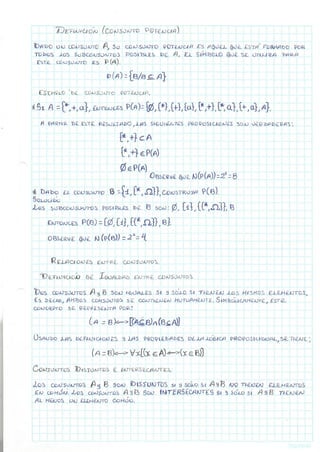 DEFINICIÓN (CONJUNTO POTENCIA)
DADO UN CONJUNTO A, SU CONJUNTO POTENCIA ES AQUEL QUE ESTÁ FORMADO POR
TODOS LOS SUBCONJUNTOS POSIBLES DE A. EL SÍMBOLO QUE SE UTILIZA PARA
ESTE CONJUNTO ES P(A).
P(A)={B/B⊆A}
EJEMPLO DE CONJUNTO POTENCIA.
SI A={*,+,a}, ENTONCES P(A)={∅,{*},{+},{a},{*,+},{*,a},{+,a},A}.
A PARTIR DE ESTE RESULTADO, LAS SIGUIENTES PROPOSICIONES SON VERDADERAS:
{*,+}⊂A
{*,+}∈P(A)
∅∈P(A)
OBSERVE QUE N(P(A))=2³=8
DADO EL CONJUNTO B={1,{*,Ω}}, CONSTRUYA P(B).
SOLUCIÓN
LOS SUBCONJUNTOS POSIBLES DE B SON: ∅, {1}, {{*,Ω}}, B
ENTONCES P(B)={∅,{1},{{*,Ω}},B}.
OBSERVE QUE N(P(B))=2²=4
RELACIONES ENTRE CONJUNTOS.
DEFINICIÓN DE IGUALDAD ENTRE CONJUNTOS.
DOS CONJUNTOS A y B SON IGUALES SI Y SÓLO SI TIENEN LOS MISMOS ELEMENTOS,
ES DECIR, AMBOS CONJUNTOS SE CONTIENEN MUTUAMENTE. SIMBÓLICAMENTE, ESTE
CONCEPTO SE REPRESENTA POR:
(A=B)↔[(A⊆B)∧(B⊆A)]
USANDO LAS DEFINICIONES Y LAS PROPIEDADES DE LA LÓGICA PROPOSICIONAL, SE TIENE;
(A=B)↔∀x[(x∈A)↔(x∈B)]
CONJUNTOS DISJUNTOS E INTERSECANTES.
LOS CONJUNTOS A y B SON DISJUNTOS SI Y SÓLO SI A y B NO TIENEN ELEMENTOS
EN COMÚN. LOS CONJUNTOS A y B SON INTERSECANTES SI Y SÓLO SI A y B TIENEN
AL MENOS UN ELEMENTO COMÚN.